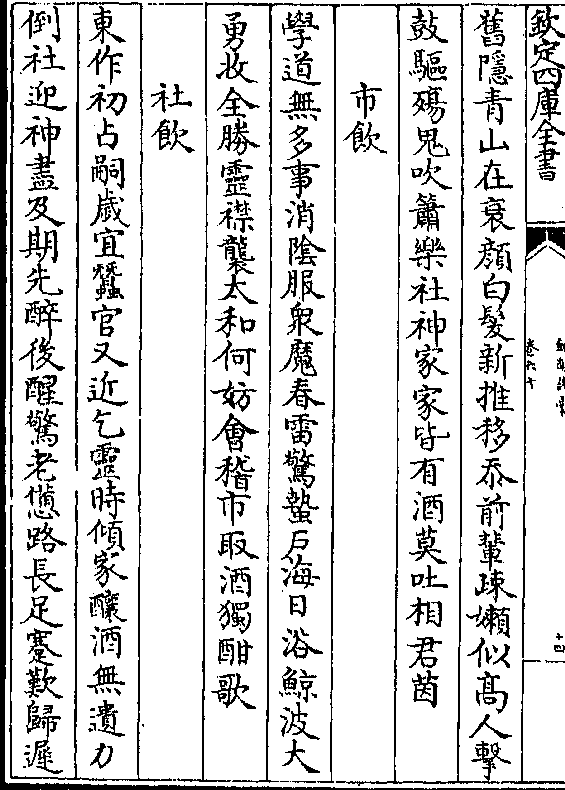 欽定四庫全書
卷六十
十四
舊隱青山在衰顔白髮新推移忝前輩疎嬾似髙人擊
鼓驅殤鬼吹簫樂社神家家皆有酒莫吐相君茵
市飲
學道無多事消陰服衆魔春雷驚蟄户海日浴鯨波大
勇收全勝靈襟襲太和何妨會稽市取酒獨酣歌
社飲
東作初占嗣歲宜蠶官又近乞靈時傾家釀酒無遺力
倒社迎神盡及期先醉後醒驚老憊路長足蹇歎歸遲